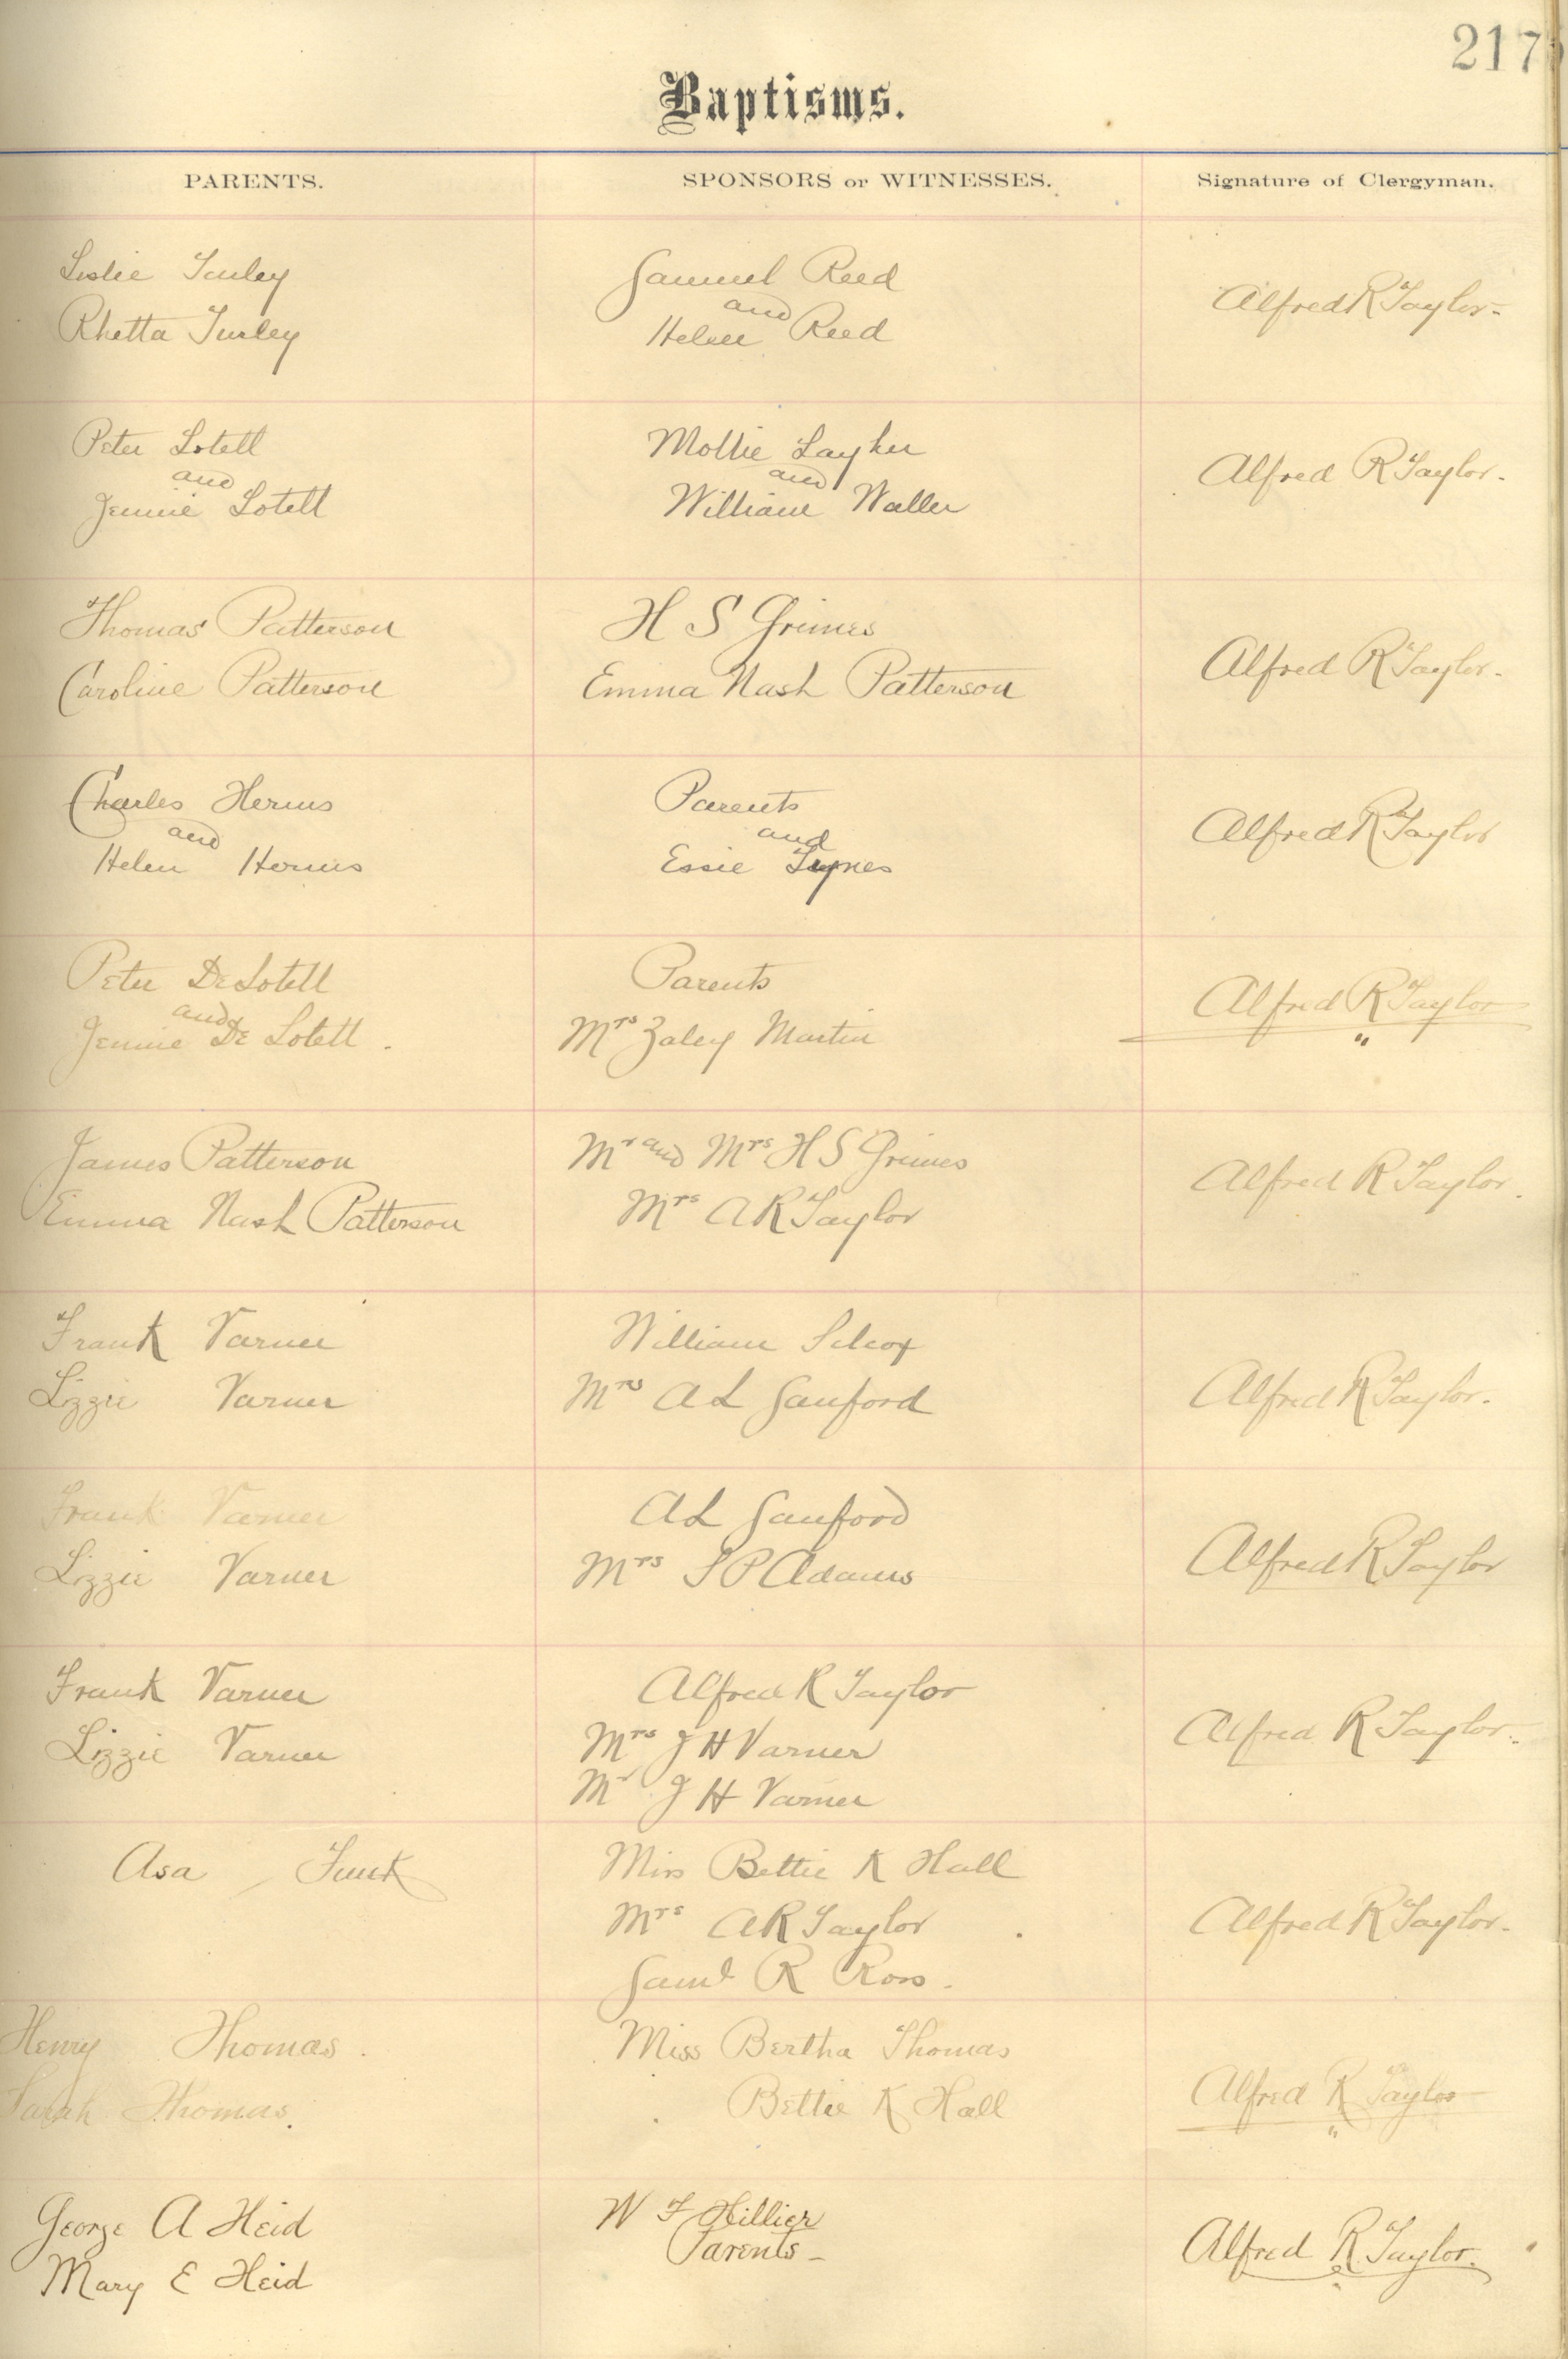 217
Baptisms.
PARENTS. SPONSORS or WITNESSES. Signature of Clergyman.
Leslie Turley
Rhetta Turley
Samuel Reed
and
Helen Reed
Alfred R Taylor-
Peter Lotell
and
Jennie Lotell
Mollie Layher
and
William Waller
Alfred R Taylor.
Thomas Patterson
Caroline Patterson
H S Grimes
Emma Nash Patterson
Alfred R Taylor.
Charles Herms
and
Helen Herms
Parents
and
Essie Tynes
Alfred R Taylor
Peter DeLotell
and
Jennie De Lotell.
Parents
Mrs Zaley Martin
Alfred R Taylor
"
James Patterson
Emma Nash Patterson
Mr and Mrs H S Grimes
Mrs A R Taylor
Alfred R Taylor.
Frank Varner
Lizzie Varner
William Silcox
Mrs A L Sanford
Alfred R Taylor.
Frank Varner
Lizzie Varner
A L Sanford
Mrs S P Adams
Alfred R Taylor
Frank Varner
Lizzie Varner
Alfred R Taylor
Mrs J H Varner
Mr J H Varner
Alfred R Taylor.
Asa Funk
Miss Bettie K Hall
Mrs A R Taylor
Saml R Ross.
Alfred R Taylor.
Henry Thomas.
Sarah Thomas.
Miss Bertha Thomas
Bettie K Hall
Alfred R Taylor
"
George A Heid
Mary E Heid
W F Hillier
Parents-
Alfred R Taylor.